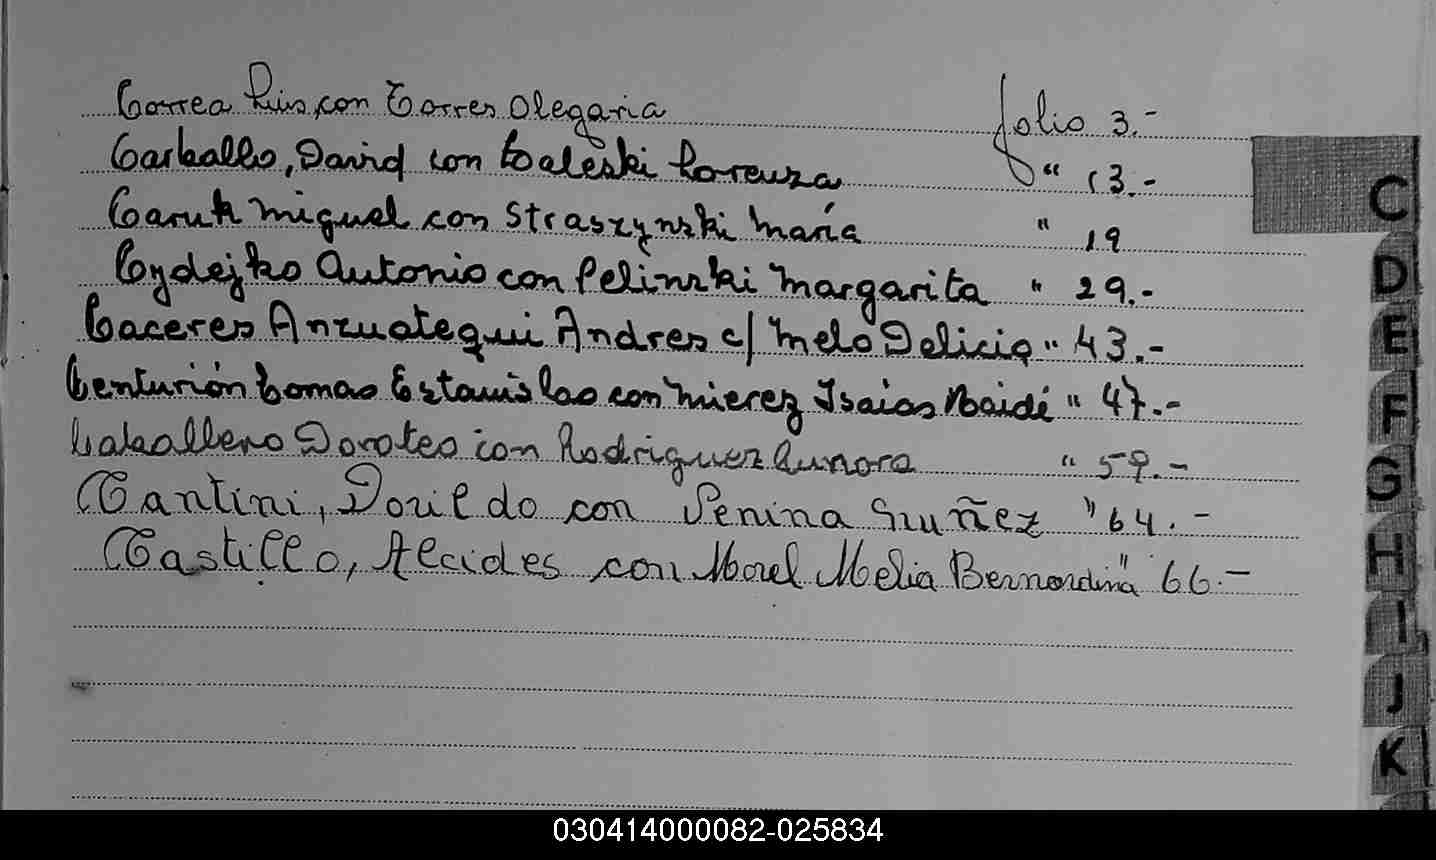 Correa Luis con Torres Olegaria folio 3.-
Carballo, David con Zaleski Lorenza " 13.-
Caruk Miguel con Straszynski María " 19
Cydejko Antonio con Pelinski Margarita " 29.-
Caceres Anzuategui Andres c/ Melo Delicia " 43.-
Centurión Tomas Estanislao con Mierez Isaias Naidé " 47.-
Caballero Doroteo con Rodriguez Aurora " 59.-
Cantini, Dorildo con Penina Nuñez " 64.-
Castillo, Alcides con Morel Melia Bernardina " 66.-
C
D
E
F
G
H
I
J
K
030414000082-025834